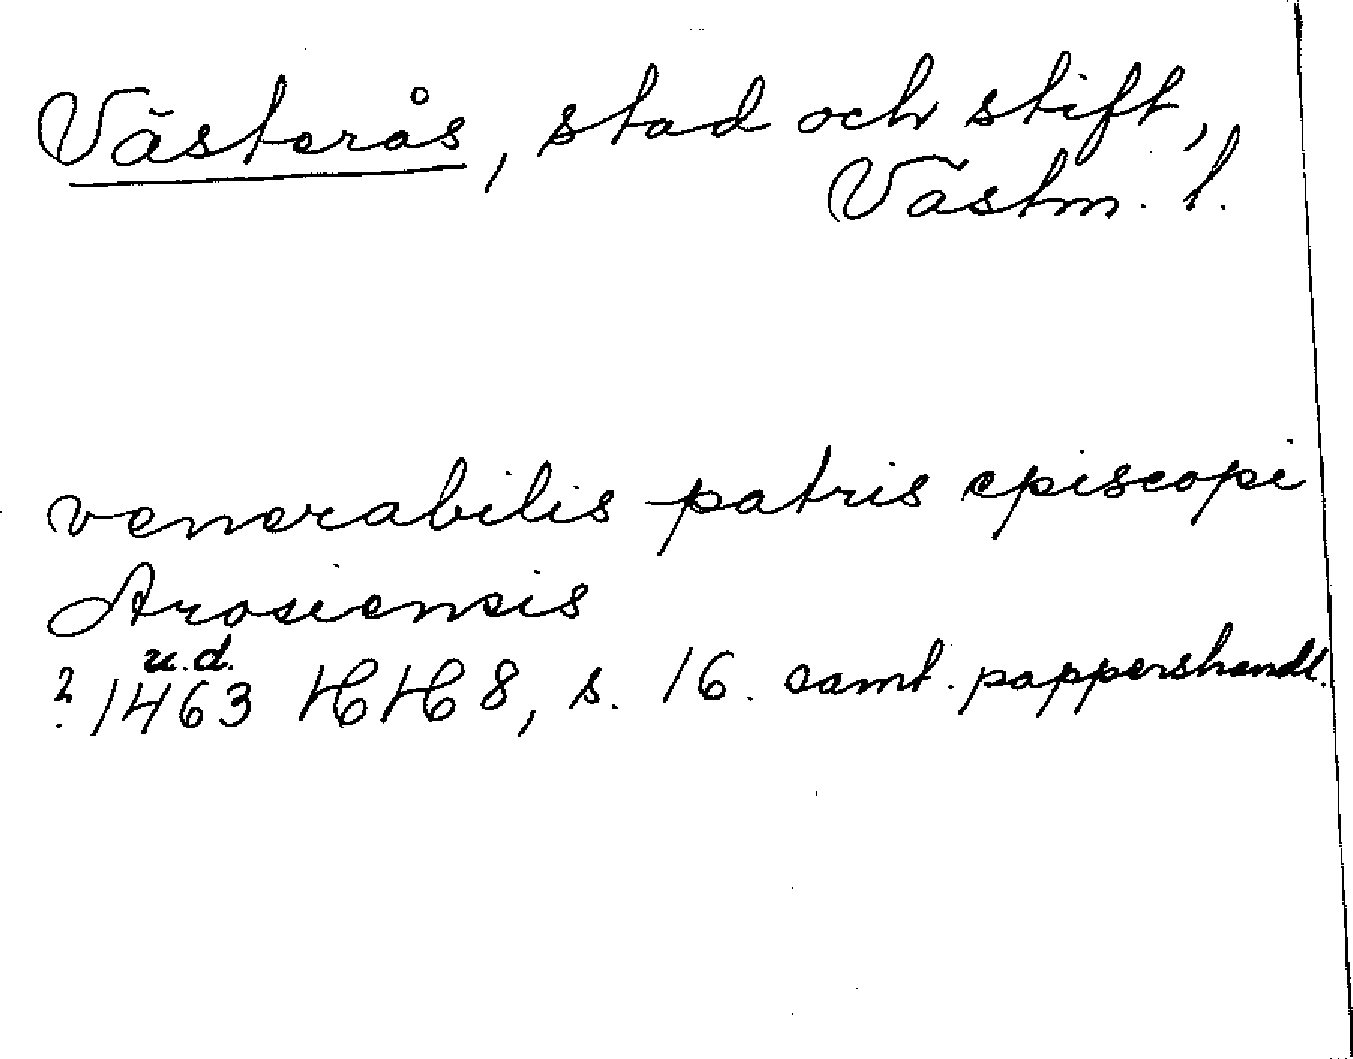 Västerås, stad och stift,
Västm. l.
venerabilis patris episcopi
Arosiensis
u.d.
? 1463 HH 8, s. 16. samt. pappershandl.